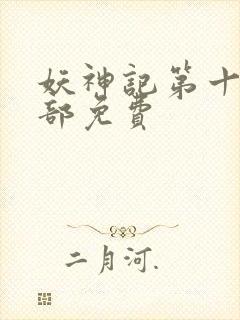 妖神記第十
部免費
二月河.